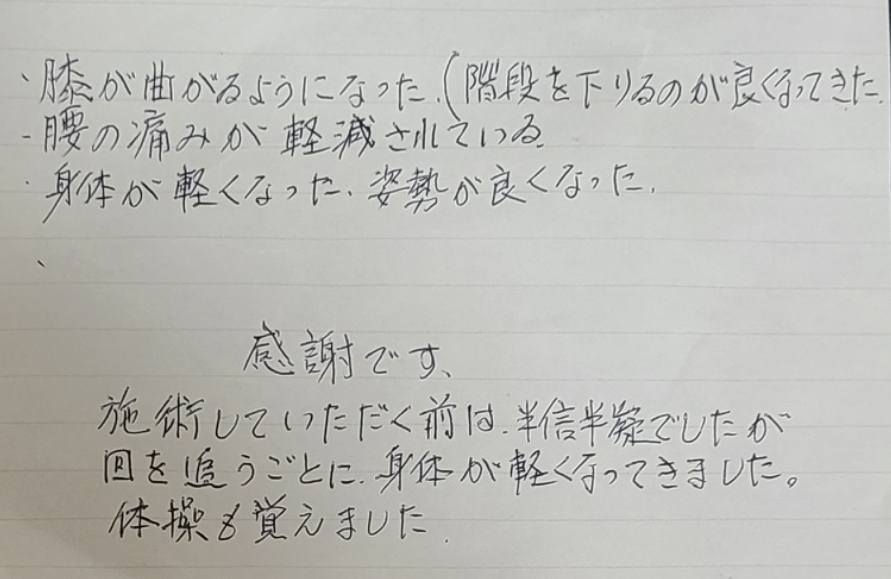 ・膝が曲がるようになった.(階段を下りるのが良くなってきた.
- 腰の痛みが軽減されている.
・身体が軽くなった、姿勢が良くなった.
、
感謝です、
施術していただく前は、半信半疑でしたが
回を追うごとに、身体が軽くなってきました。
体操も覚えました.